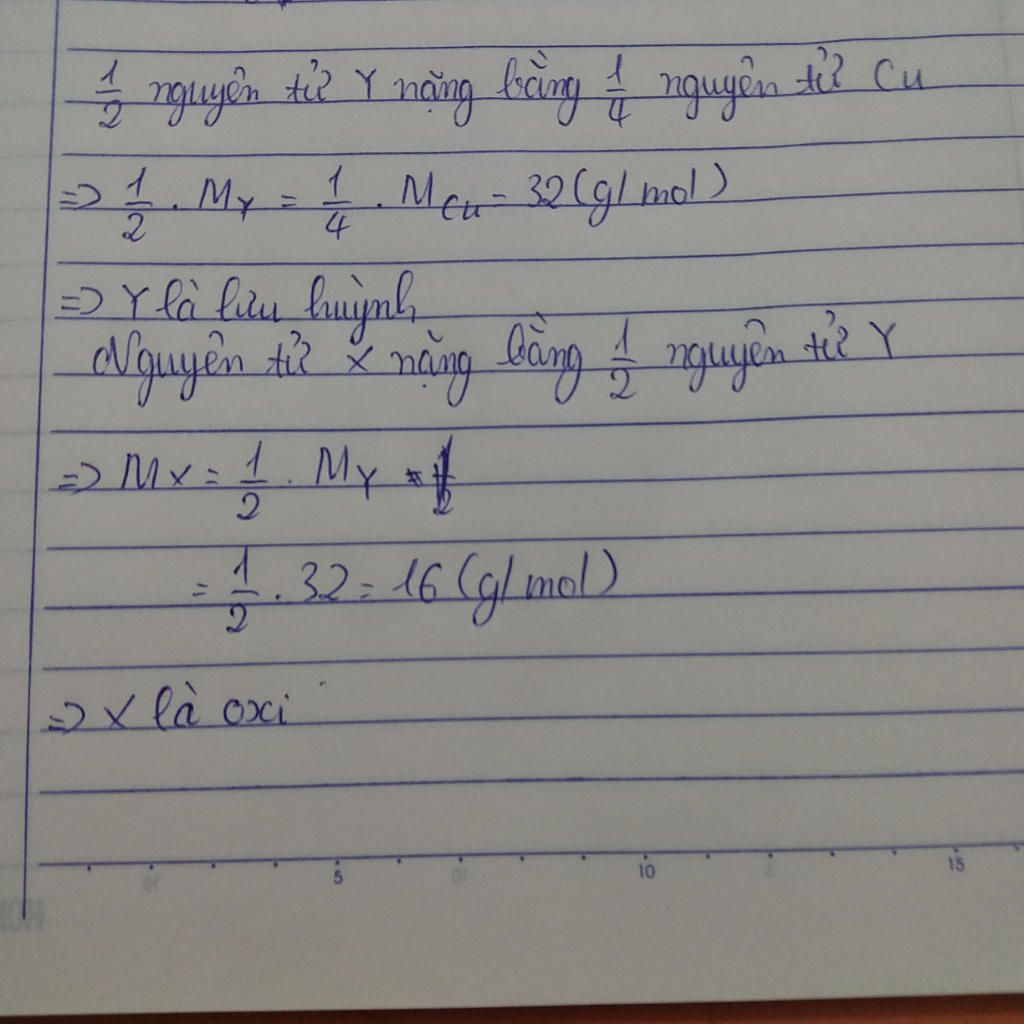 1/2 nguyên tử Y nặng bằng 1/4 nguyên tử Cu
=> 1/2 . MY = 1/4 . MCu = 32 (g/mol)
=> Y là lưu huỳnh
Nguyên tử X nặng bằng 1/2 nguyên tử Y
=> MX = 1/2 . MY
= 1/2 . 32 = 16 (g/mol)
=> X là oxi
5 10 15